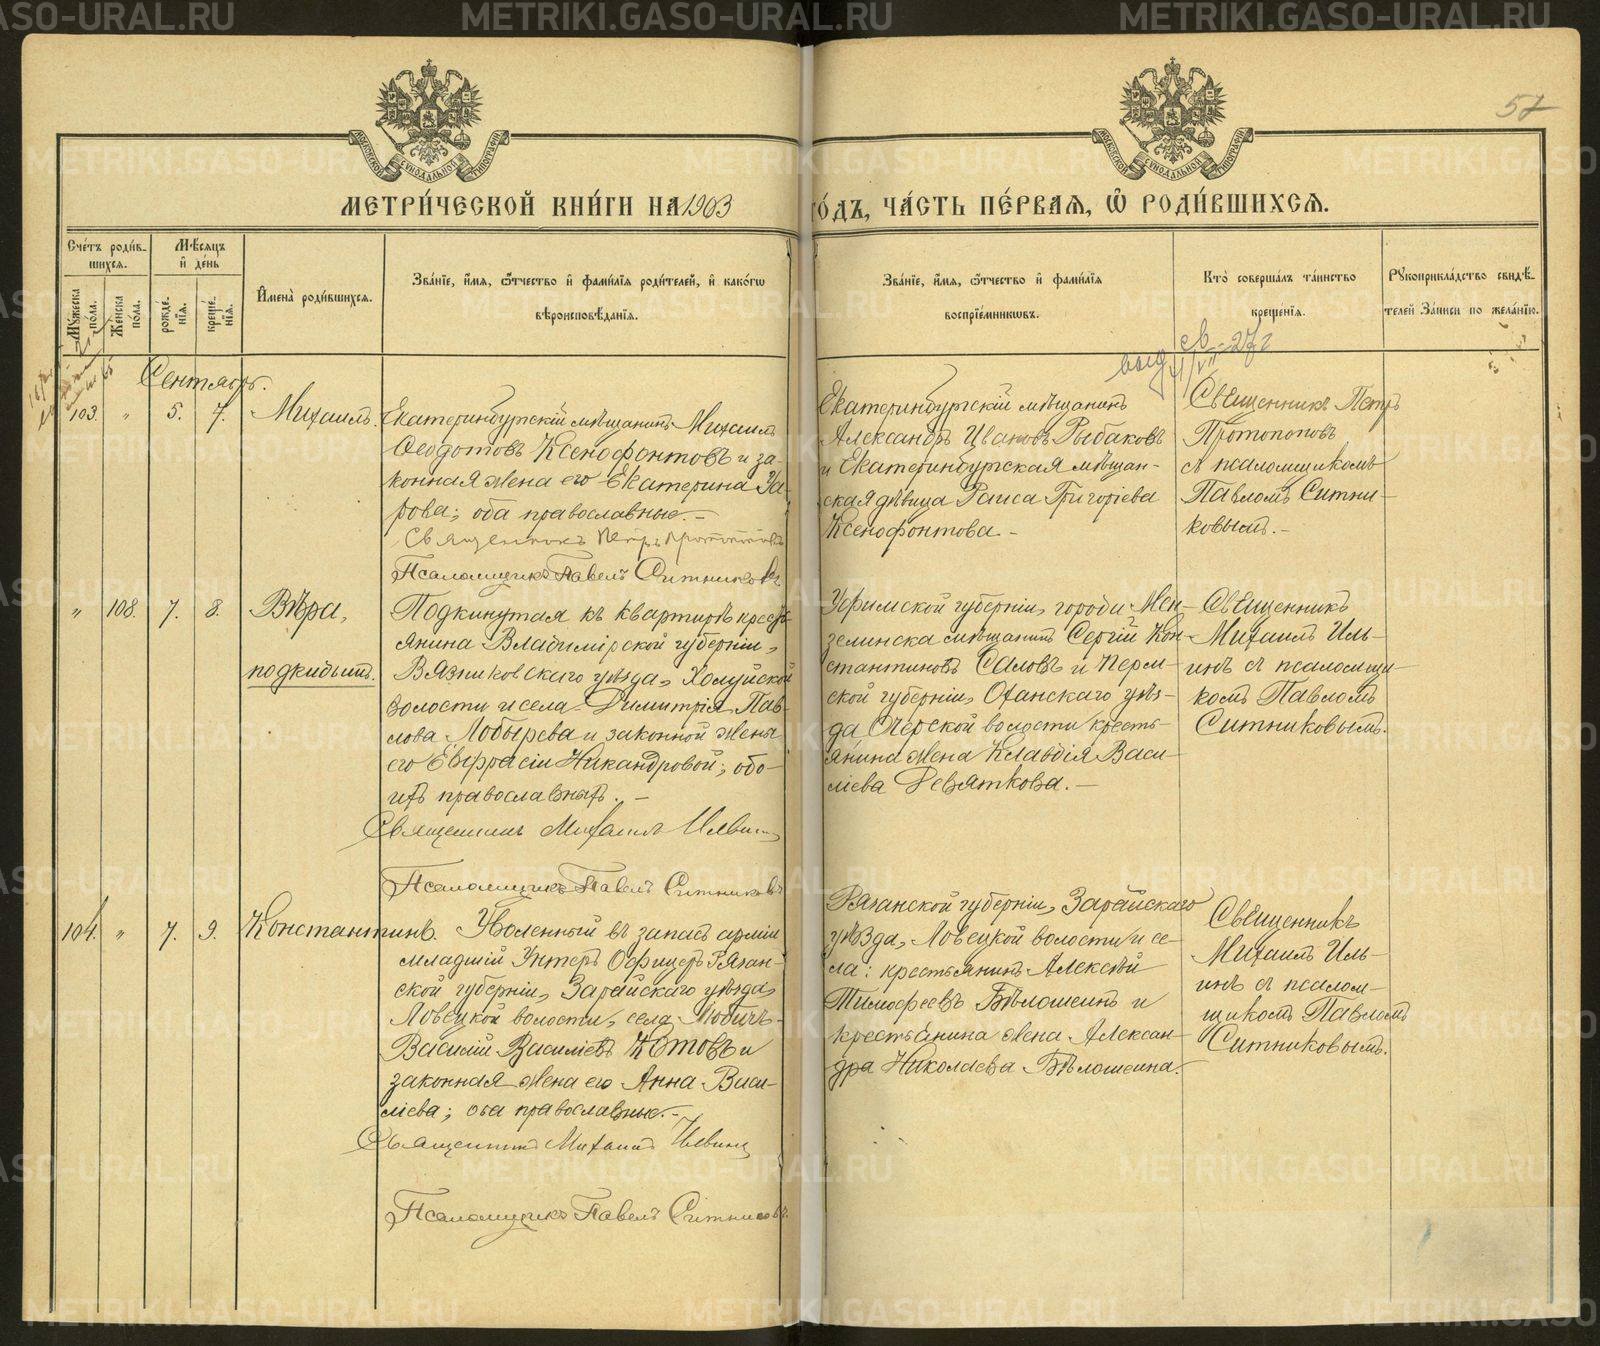 57
МЕТРИ́ЧЕСКОЙ КНИ́ГИ НА 1903
ГО́ДЪ, ЧА́СТЬ ПЕ́РВАѦ, Ѽ РОДИ́ВШИХСѦ.
Сче́тъ роди́вшихсѧ.
Мꙋ́жеска по́ла.
Же́нска по́ла.
Мѣ́сѧцъ и҆ де́нь
рожде́нїѧ.
креще́нїѧ.
И҆мена̀ роди́вшихсѧ.
Зва́нїе, и҆́мѧ, ѻ҆́тчество и҆ фами́лїѧ роди́телей, и҆ како́гѡ
вѣроисповѣ́данїѧ.
Зва́нїе, и҆́мѧ, ѻ҆́тчество и҆ фами́лїѧ
воспрїе́мникѡвъ.
Кто̀ соверша́лъ та́инство
креще́нїѧ.
Рꙋкоприкла́дство свидѣ́-
телей за́писи по жела́нїю.
Сентябрь.
103 " 5. 7. Михаилъ.
Екатеринбургскій мѣщанинъ Михаилъ
Ѳеодотовъ Ксенофонтовъ и за-
конная жена его Екатерина За-
рова; оба православные.-
Священникъ Петръ Протопоповъ
Псаломщикъ Павелъ Ситниковъ
Екатеринбургскій мѣщанинъ
Александръ Ивановъ Рыбаковъ
и Екатеринбургская мѣщан-
ская дѣвица Раиса Григоріева
Ксенофонтова.-
Священникъ Петръ
Протопоповъ
съ псаломщикомъ
Павломъ Ситни-
ковымъ.-
" 108. 7. 8. Вѣра,
подкидышъ.
Подкинутая къ квартирѣ кресть-
янина Владимірской губерніи,
Вязниковскаго уѣзда, Холуйской
волости и села Димитрія Пав-
лова Лобырева и законной жены
его Евфрасіи Никандровой; обо-
ихъ православныхъ.-
Священникъ Михаилъ Ильинъ
Псаломщикъ Павелъ Ситниковъ
Уфимской губерніи, города Мен-
зелинска мѣщанинъ Сергій Кон-
стантиновъ Саловъ и Перм-
ской губерніи, Оханскаго уѣз-
да Очерской волости кресть-
янина жена Клавдія Васи-
ліева Девяткова.-
Священникъ
Михаилъ Иль-
инъ съ псаломщи-
комъ Павломъ
Ситниковымъ.
104. " 7. 9. Константинъ.
Уволенный въ запасъ арміи
младшій Унтеръ Офицеръ Рязан-
ской губерніи, Зарайскаго уѣзда,
Ловецкой волости, села Любичъ-
Василій Василіевъ Котовъ и
законная жена его Анна Васи-
ліева; оба православные.-
Священникъ Михаилъ Ильинъ
Псаломщикъ Павелъ Ситниковъ.
Рязанской губерніи, Зарайскаго
уѣзда, Ловецкой волости и се-
ла: крестьянинъ Алексѣй
Тимофеевъ Бѣлошеинъ и
крестьянина жена Алексан-
дра Николаева Бѣлошеина.
Священникъ
Михаилъ Иль-
инъ съ псалом-
щикомъ Павломъ
Ситниковымъ.
METRIKI.GASO-URAL.RU